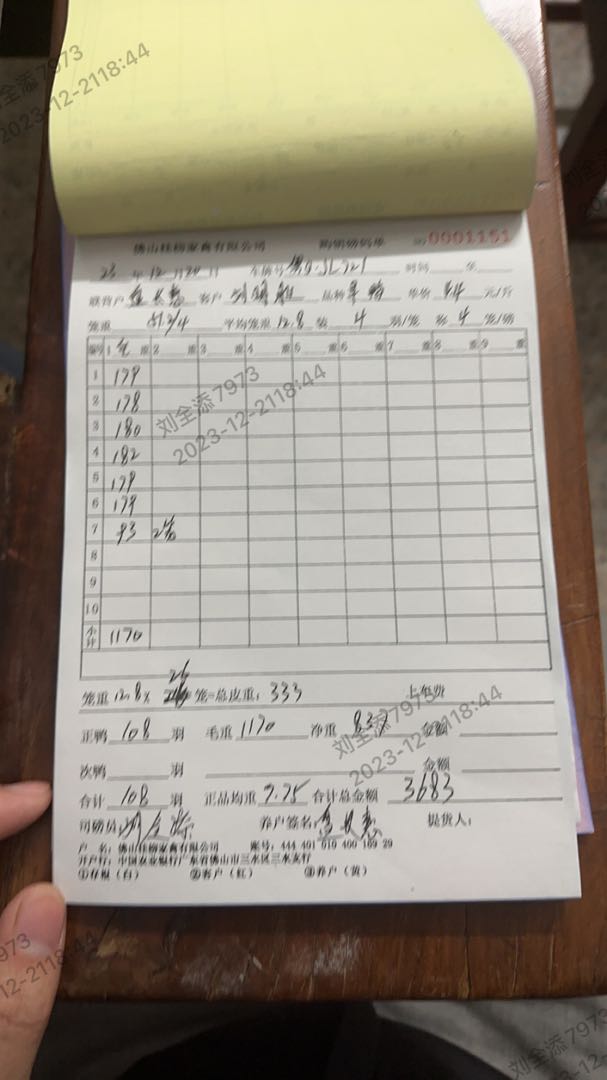 佛山桂柳家禽有限公司 购销磅码单 NO 0001151
23 年 12 月 20 日 车牌号 时间 至
联营户 客户 品种 单价 4.4 元/斤
笼重 51.2/4 平均笼重 12.8 装 4 羽/笼 称 4 笼/磅
编号 1 毛 重 2 重 3 重 4 重 5 重 6 重 7 重 8 重 9 重
1 179
2 178
3 180
4 182
5 179
6 179
7 93 2笼
8
9
10
小计 1170
笼重 12.8 × 26 笼=总皮重: 333 上车费
正鸭 108 羽 毛重 1170 净重 837 金额
次鸭 羽 金额
合计 108 羽 正品均重 7.75 合计总金额 3683
司磅员: 刘全添 养户签名: 提货人:
户 名: 佛山桂柳家禽有限公司 账号: 444 491 010 400 169 29
开户行: 中国农业银行广东省佛山市三水区三水支行
①存根（白） ②客户（红） ③养户（黄）
刘全添7973
2023-12-2118:44
刘全添7973
2023-12-2118:44
刘全添7973
2023-12-2118:44
7973
2-2118:44
刘全添7973